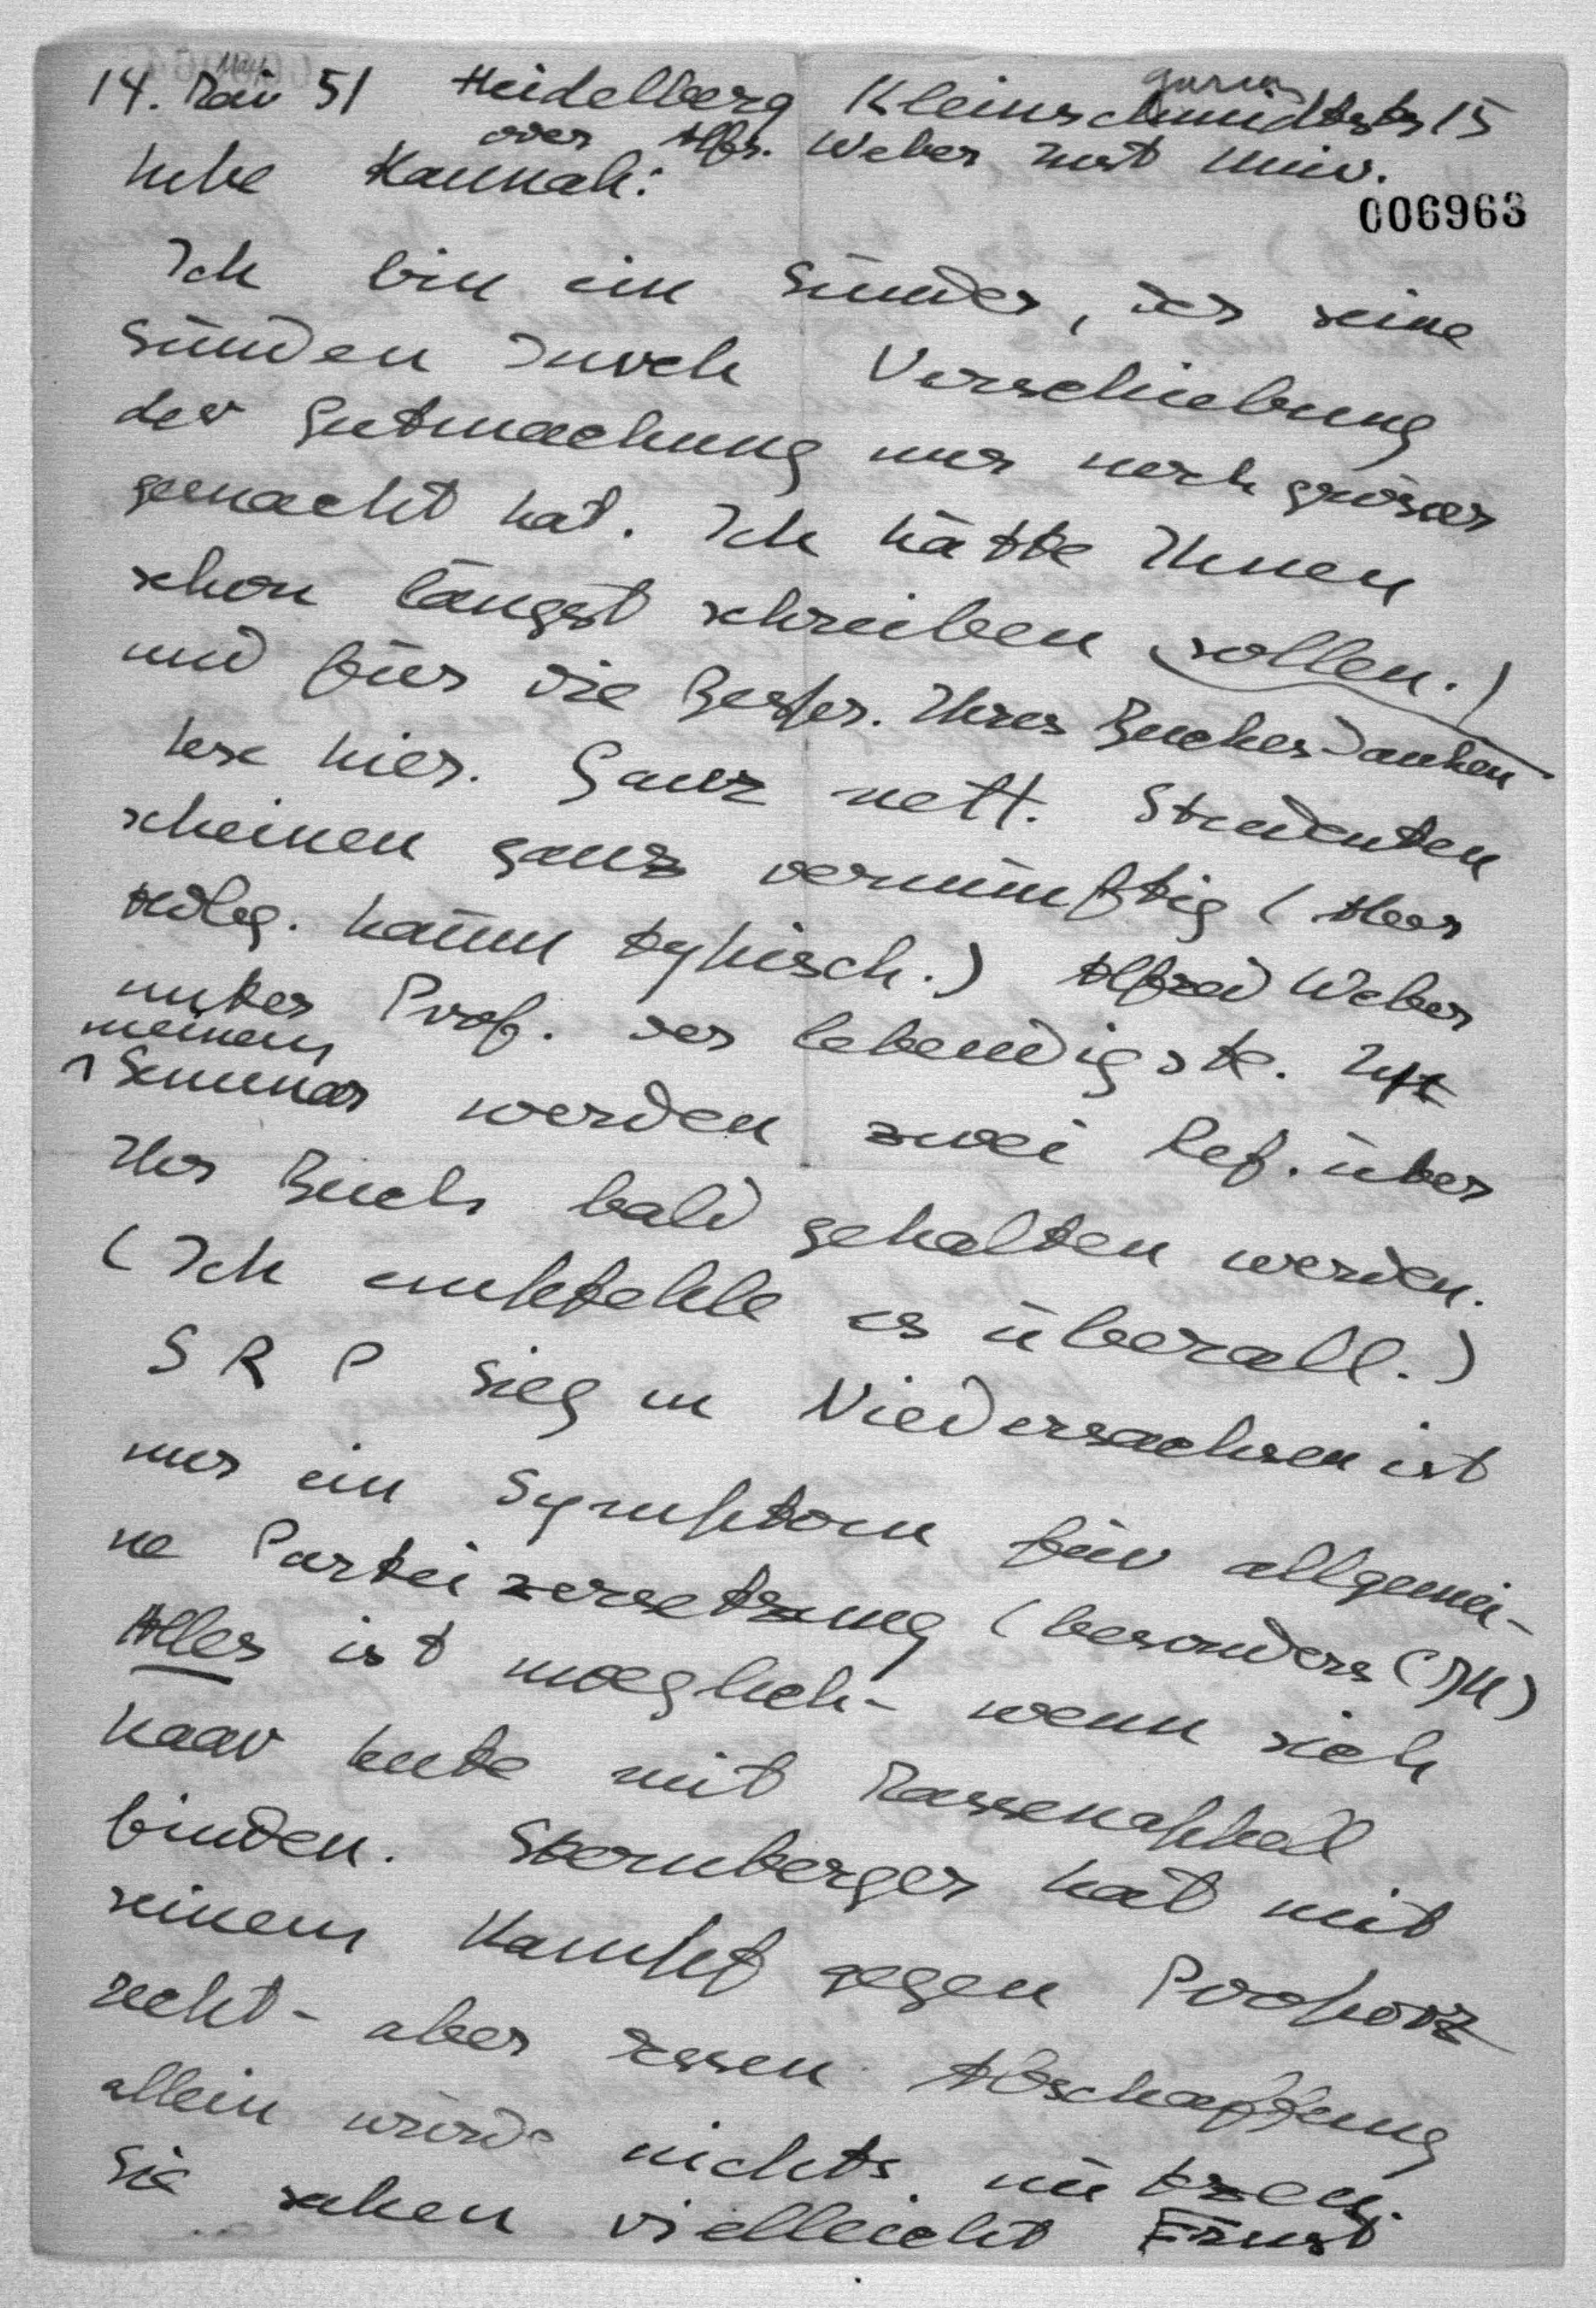 14. Mai 51 Heidelberg Kleinschmidtstr 15
oder Alfr. Weber Inst Univ.
Liebe Hannah:
006963
Ich bin ein Sünder, der seine
Sünden durch Verschiebung
der Gutmachung nur noch grösser
gemacht hat. Ich hätte Ihnen
schon längst schreiben sollen.
und für die Besor. Ihres Buches danken
Lese hier. Ganz nett. Studenten
scheinen ganz vernünftig (Aber
Hdlbg. kaum typisch.) Alfred Weber
unter Prof. der lebendigste. In
meinem
Seminar werden zwei Ref. über
Ihr Buch bald gehalten werden.
(Ich empfehle es überall.)
SRP Sieg in Niedersachsen ist
nur ein Symptom für allgemei-
ne Parteizersetzung (besonders CDU)
Alles ist moeglich - wenn sich
Leute mit
finden. Sternberger hat mit
seinem Kampf gegen Proporz
recht - aber dessen Abschaffung
allein würde nichts nützen.
Sie sehen vielleicht Ernst